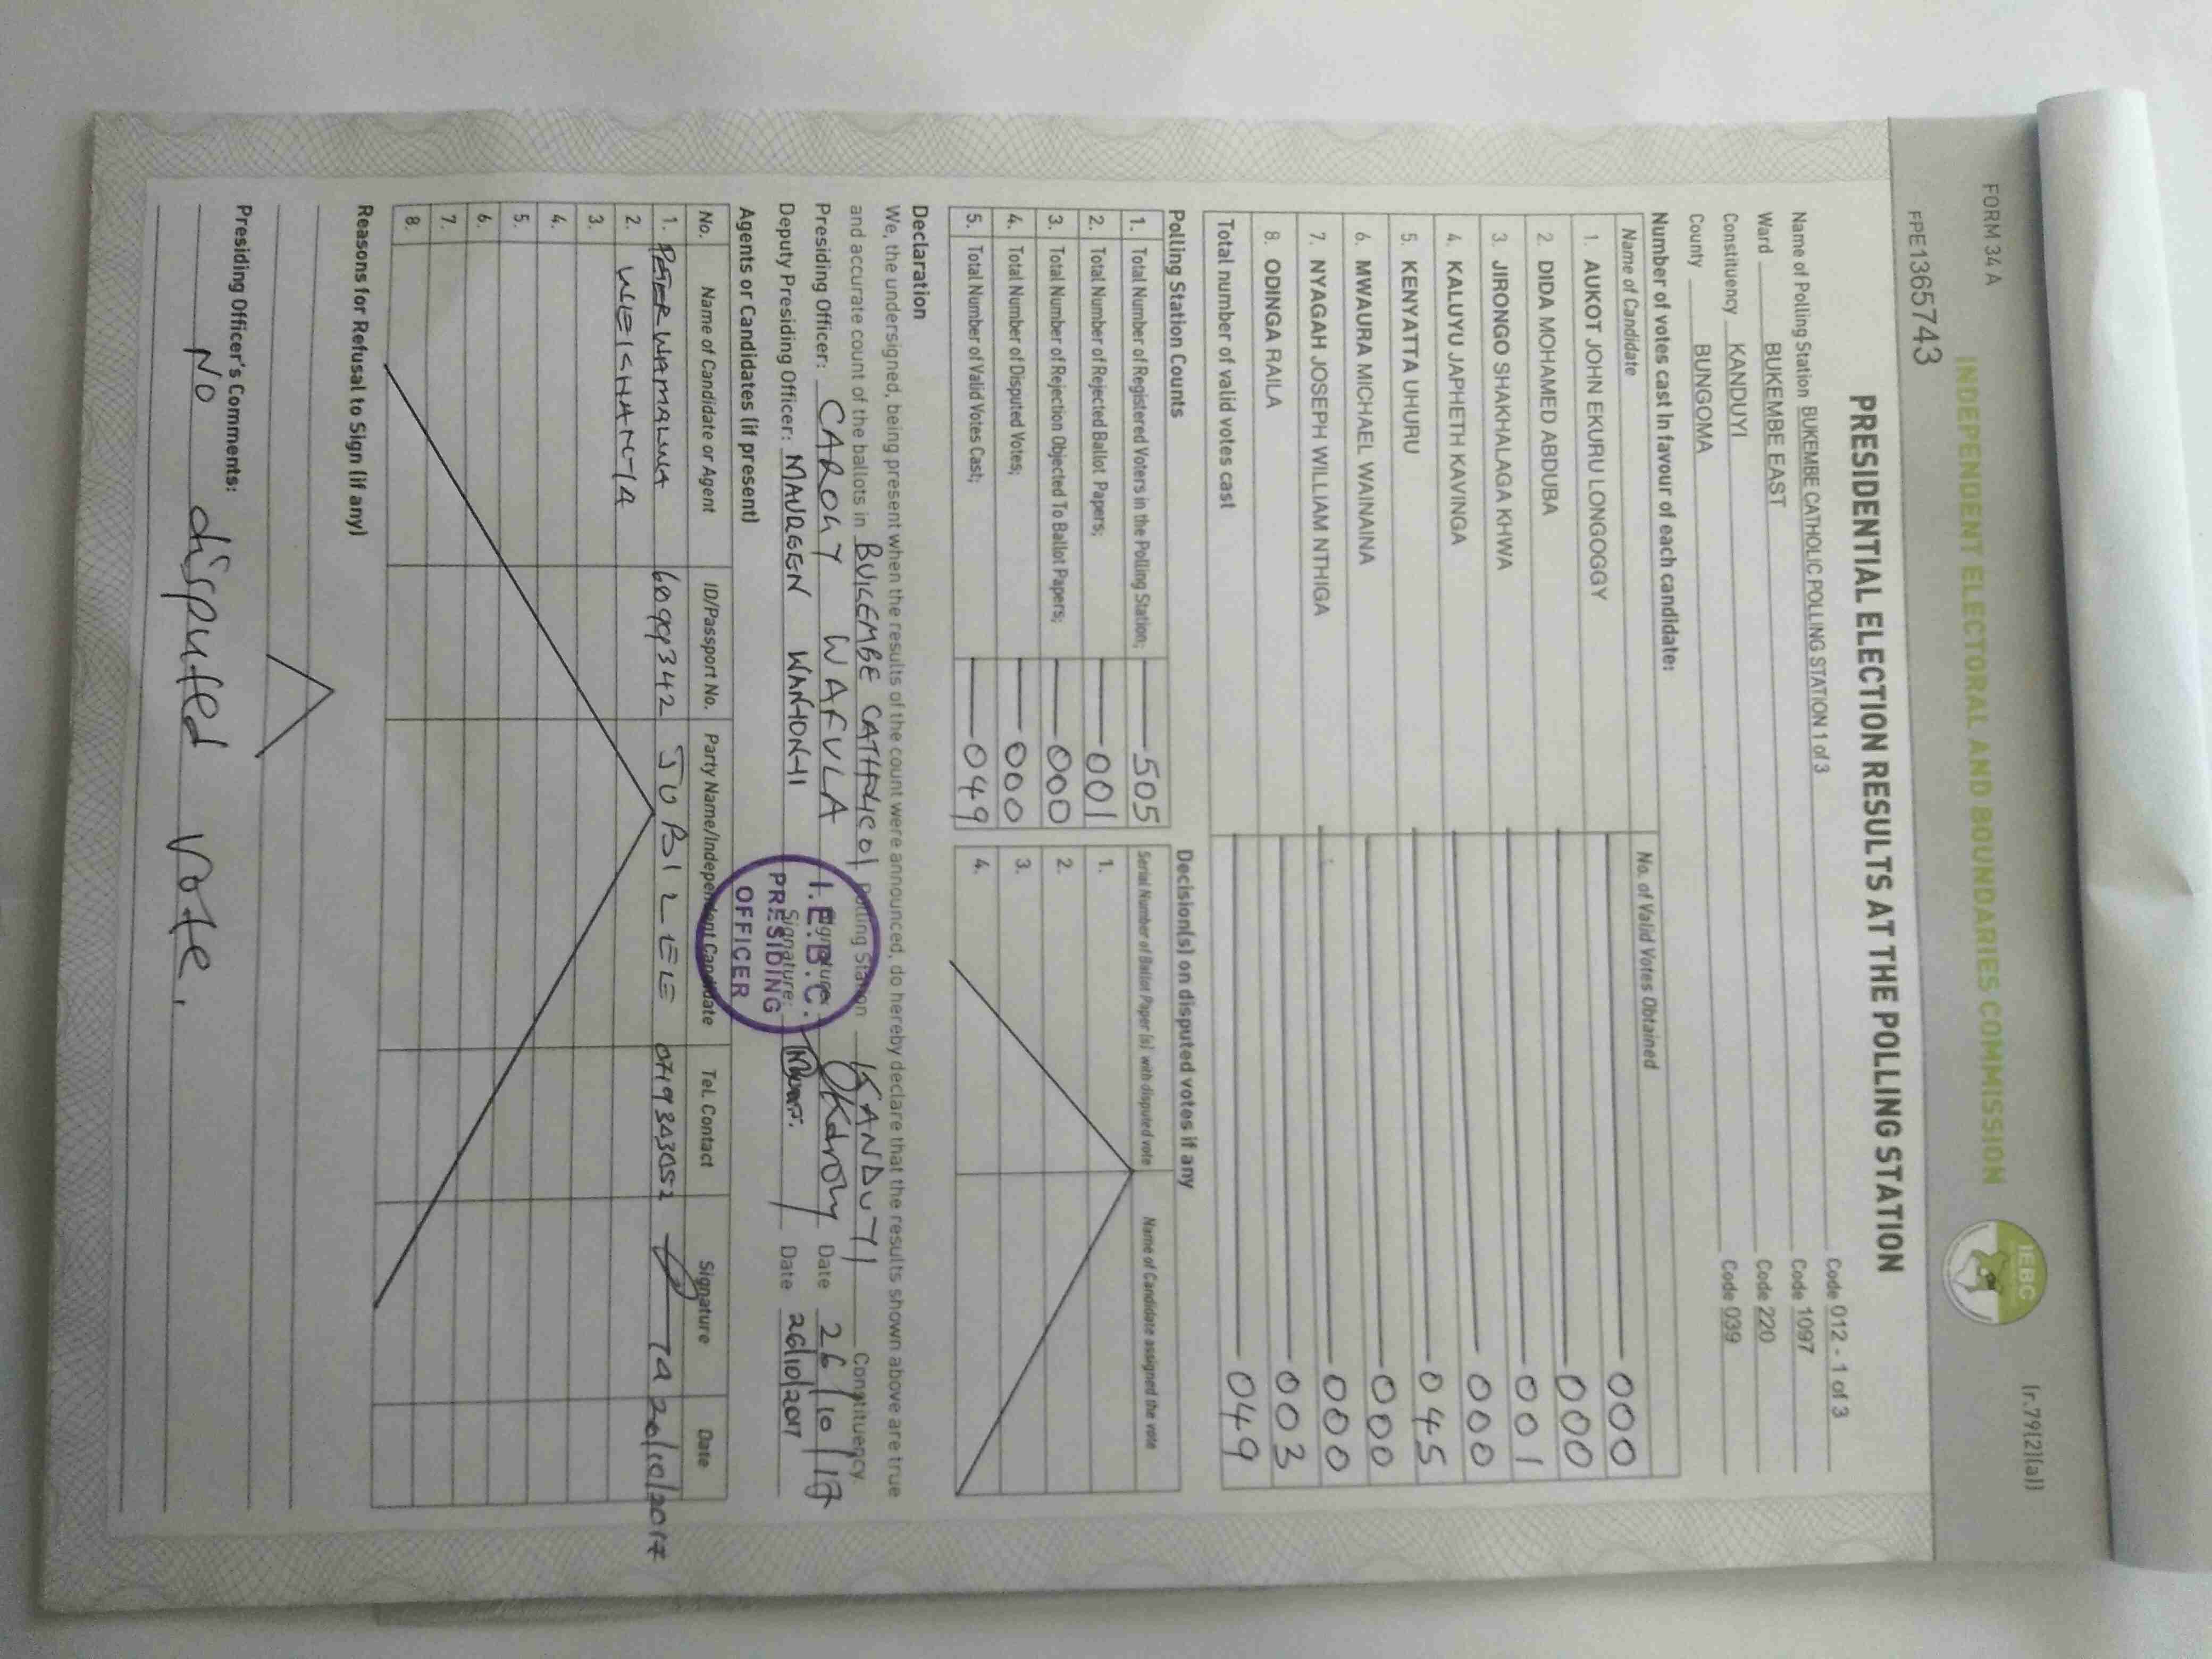 FORM 34 A
(r.79(2)(a))
INDEPENDENT ELECTORAL AND BOUNDARIES COMMISSION
IEBC
FPE1365743
PRESIDENTIAL ELECTION RESULTS AT THE POLLING STATION
Name of Polling Station BUKEMBE CATHOLIC POLLING STATION 1 of 3 Code 012 - 1 of 3
Ward BUKEMBE EAST Code 1097
Constituency KANDUYI Code 220
County BUNGOMA Code 039
Number of votes cast in favour of each candidate:
Name of Candidate No. of Valid Votes Obtained
1. AUKOT JOHN EKURU LONGOGGY 000
2. DIDA MOHAMED ABDUBA 000
3. JIRONGO SHAKHALAGA KHWA 001
4. KALUYU JAPHETH KAVINGA 000
5. KENYATTA UHURU 045
6. MWAURA MICHAEL WAINAINA 000
7. NYAGAH JOSEPH WILLIAM NTHIGA 000
8. ODINGA RAILA 003
Total number of valid votes cast 049
Polling Station Counts
1. Total Number of Registered Voters in the Polling Station; 505
2. Total Number of Rejected Ballot Papers; 001
3. Total Number of Rejection Objected To Ballot Papers; 000
4. Total Number of Disputed Votes; 000
5. Total Number of Valid Votes Cast; 049
Decision(s) on disputed votes if any
Serial Number of Ballot Paper (s) with disputed vote Name of Candidate assigned the vote
1.
2.
3.
4.
Declaration
We, the undersigned, being present when the results of the count were announced, do hereby declare that the results shown above are true
and accurate count of the ballots in BUKEMBE CATHOLIC 01 Polling Station KANDUYI Constituency.
Presiding Officer: CAROLY WAFULA Signature: Date 26/10/17
Deputy Presiding Officer: MAUREEN Signature: Date 26/10/2017
I.E.B.C.
PRESIDING
OFFICER
Agents or Candidates (if present)
No. Name of Candidate or Agent ID/Passport No. Party Name/Independent Candidate Tel. Contact Signature Date
1. PETER WAMALWA 6099342 JUBILEE 0719343052 26/10/2017
2.
3.
4.
5.
6.
7.
8.
Reasons for Refusal to Sign (if any)
Presiding Officer's Comments:
No disputed vote.